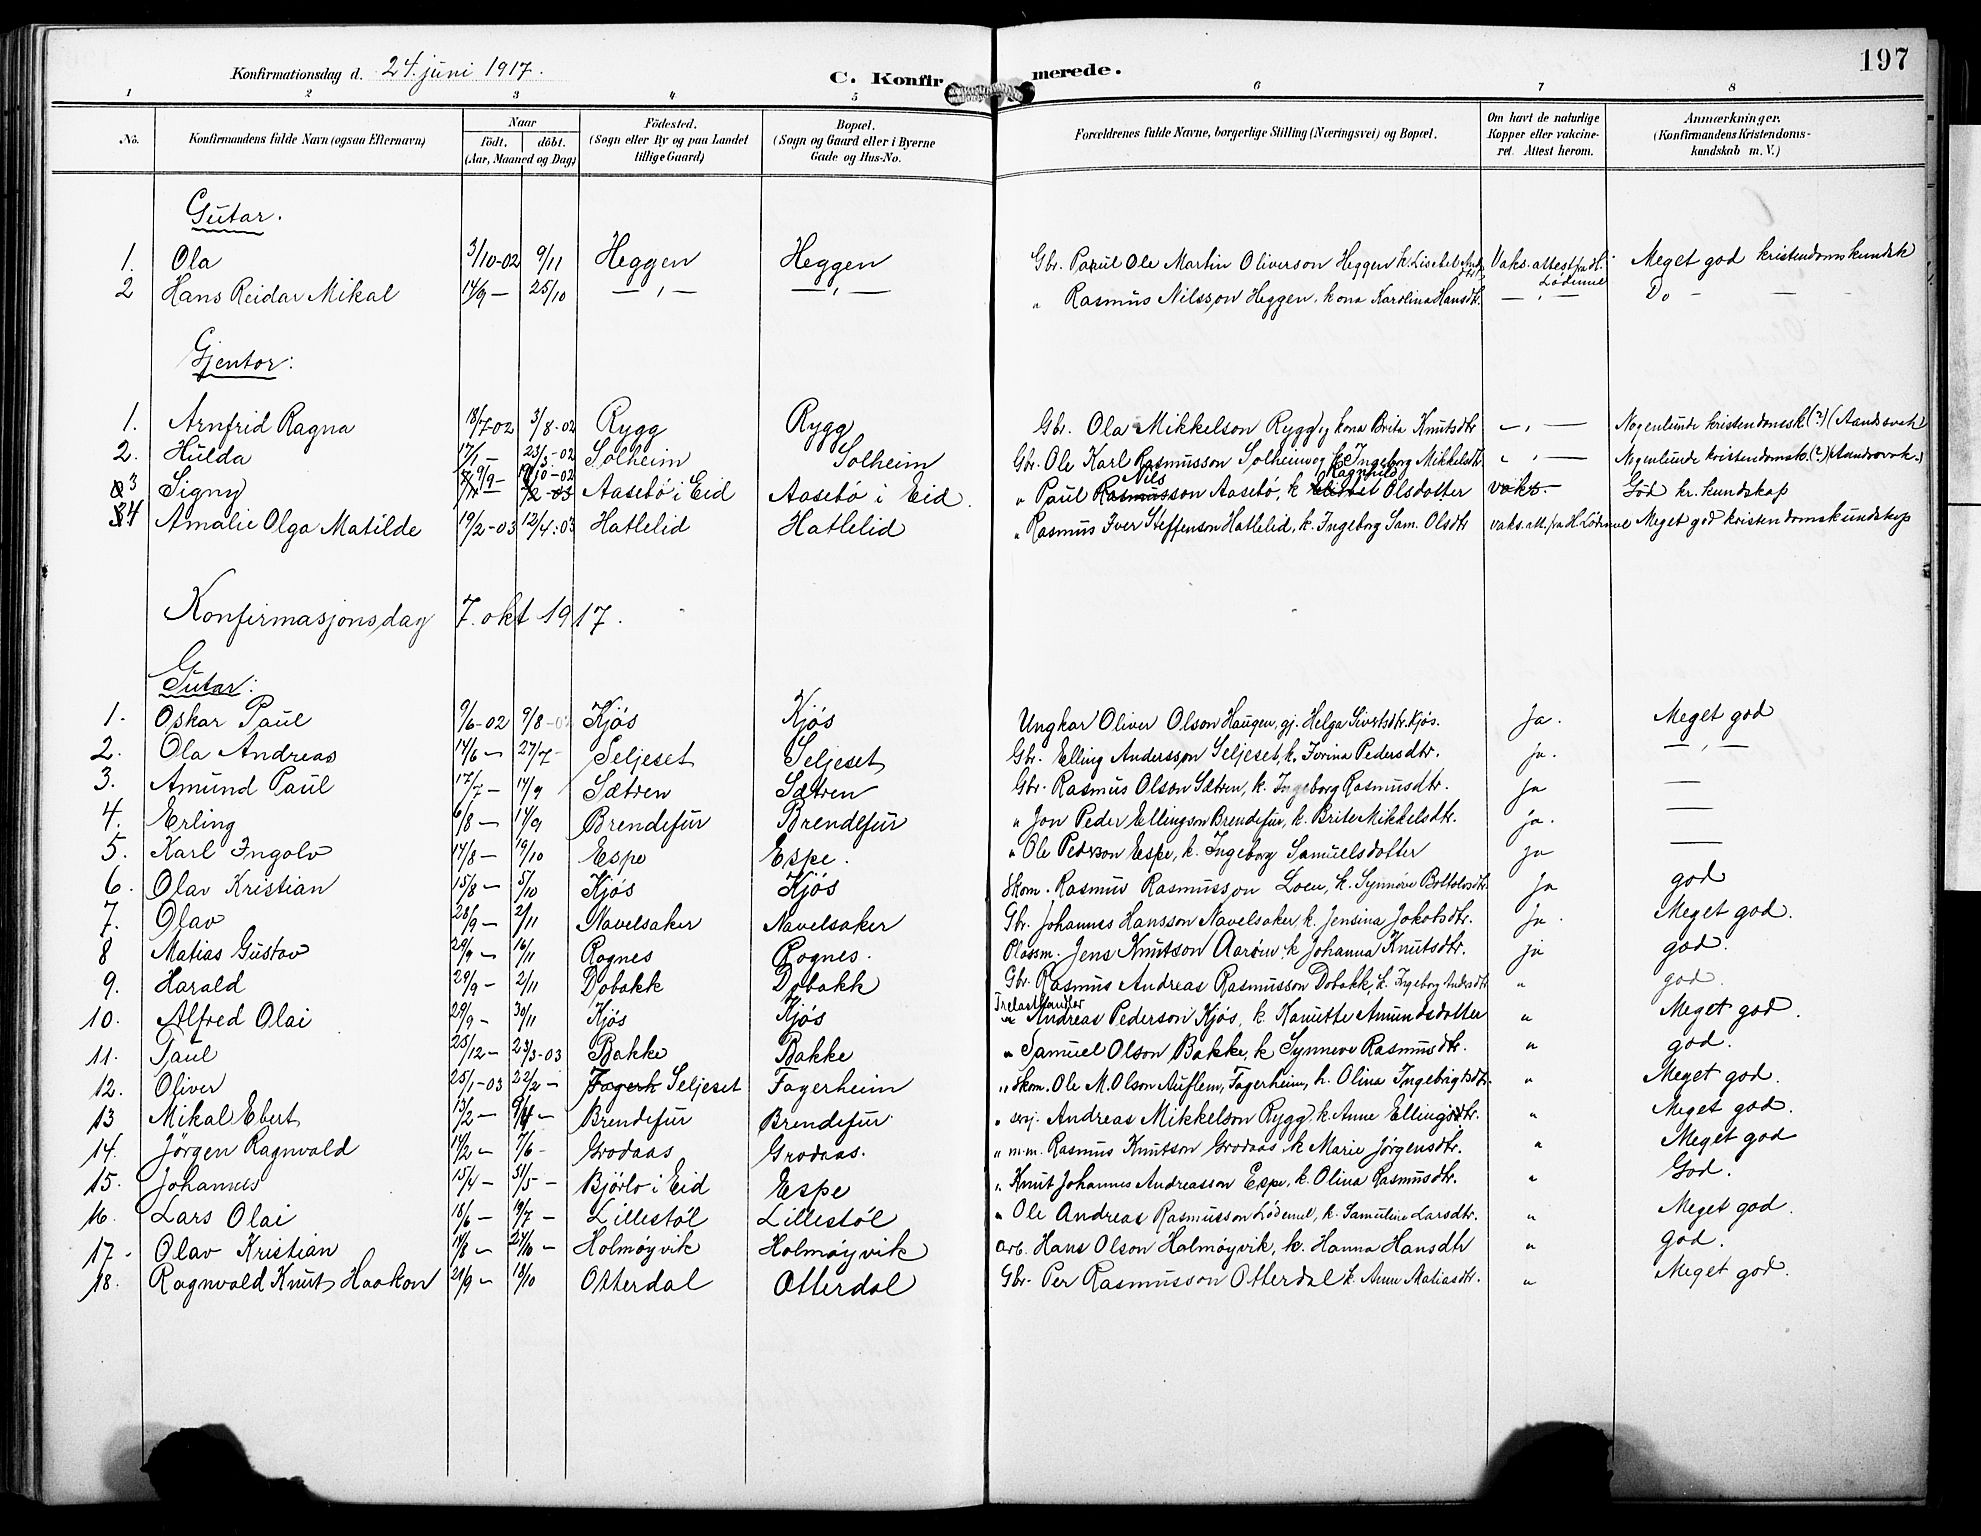 197
Konfirmationsdag d. 24. juni 1917.
C. Konfirmerede.
1 2 3 4 5 6 7 8
No. Konfirmandens fulde Navn (ogsaa Efternavn) Naar födt. döbt. (Aar, Maaned og Dag) Födested. (Sogn eller By og paa Landet tillige Gaard) Bopæl. (Sogn og Gaard eller i Byerne Gade og Hus-No. Forældrenes fulde Navne, borgerlige Stilling (Næringsvei) og Bopæl. Om havt de naturlige Kopper eller vakcineret. Attest herom. Anmærkninger. (Konfirmandens Kristendomskundskab m. V.)
Gutar.
1. Ola 3/10-02 9/11 Heggen Heggen Gbr. Paul Ole Martin Oliverson Heggen k. Lisebet And.dtr. Vaks. attest fra H. Lödemel Meget god kristendomskundsk
2 Hans Reidar Mikal 14/9 — 25/10 — " — — " — " Rasmus Nilsson Heggen, kona Karolina Hansdtr. — " — Do — — —
Gjentor:
1. Arnfrid Ragna 18/7-02 3/8-02 Rygg Rygg Gbr. Ola Mikkelson Rygg, kona Brita Knutsdtr — " — Nogenlunde kristendomssk. (?) (Aandssvak)
2. Hulda 17/1 — 23/3-02 Solheim Solheim Gbr. Ole Karl Rasmusson Solheim og k. Ingeborg Mikkelsdtr " " — Nogenlunde kristendomsk. (?) (Aandssvak.)
3 Signy 9/9 — 19/10-02 Aasebö i Eid Aasebö i Eid. " Paul Nils Rasmusson Aasebö, k. Ragnhild Olsdotter vaks. — God kr. kundskap
4 Amalie Olga Matilde 19/2-03 12/4:03 Hatlelid Hatlelid " Rasmus Iver Steffenson Hatlelid, k. Ingeborg Sam. Olsdtr vaks. att. fra H. Lödemel Meget god kristendomskundskap
Konfirmasjonsdag 7. okt 1917.
Gutar:
1. Oskar Paul 9/6-02 9/8-02 Kjös Kjös Ungkar Oliver Olson Haugen, gj. Helga Sivertsdtr. Kjös. Ja. Meget god
2. Ola Andreas 14/6 — 27/7 - Seljeset Seljeset Gbr. Elling Andersson Seljeset, k. Jorina Pedersdtr. ja. — " —
3. Amund Paul 17/7 — 14/9 Sætren Sætren Gbr. Rasmus Olson Sætren, k. Ingeborg Rasmusdtr. ja —
4. Erling 6/8 — 14/9 Brendefur Brendefur " Jon Peder Ellingson Brendefur, k. Brite Mikkelsdtr. ja. —
5. Karl Ingolv 14/8 — 19/10 Espe Espe. " Ole Pedersson Espe, k. Ingeborg Samuelsdotter ja —
6. Olav Kristian 15/8 — 5/10 Kjös Kjös Skom. Rasmus Rasmusson Loen, k. Synnöve Bottolvsdtr. Ja god
7. Olav 28/9 — 2/11 Navelsaker Navelsaker Gbr. Johannes Hansson Navelsaker k. Jensina Jakobsdtr. Ja. Meget god.
8 Matias Gustav 29/9 — 16/11 Rognes Rognes. Plassm. Jens Knutson Aaröen k. Johanna Knutsdtr. ja god.
9. Harald 29/9 — 2/11 Dobakk Dobakk Gbr. Rasmus Andreas Rasmusson Dobakk, k. Ingeborg Andersdtr " god.
10. Alfred Olai 29/9 — 30/11 Kjös Kjös Trelasthandler Andreas Pederson Kjös, k. Kanutte Amundsdotter " Meget god.
11. Paul 25/12 — 23/3-03 Bakke Bakke " Samuel Olson Bakke, k Synneve Rasmusdtr. " god.
12. Oliver 25/1-03 22/2 — Fagerh Seljeset Fagerheim " Skom. Ole M. Olson Auflem, Fagerheim, k. Olina Ingebrigtsdtr. " Meget god.
13 Mikal Ebert 13/2 — Brendefur Brendefur " Andreas Mikkelson Rygg, k. Anne Ellingsdtr. " Meget god.
14. Jörgen Ragnvald 14/2 — 7/6 - Grodaas Grodaas. " m.m. Rasmus Knutson Grodaas k Marie Jörgensdtr. " Meget god
15. Johannes 15/4 — 31/5 — Björlo i Eid Espe " Knut Johannes Andreasson Espe, k. Olina Rasmusdtr. " God.
16. Lars Olai 18/6 — 19/7 — Lillestöl Lillestöl " Ole Andreas Rasmusson Lödemel, k. Samuline Larsdtr. " Meget god.
17. Olav Kristian 14/8 — Holmöyvik Holmöyvik arb. Hans Olson Holmöyvik, k. Hanna Hansdtr " god.
18. Ragnvald Knut Haakon 21/9 — 18/10 Otterdal Otterdal Gbr. Per Rasmusson Otterdal k. Anne Matiasdtr. " Meget god.